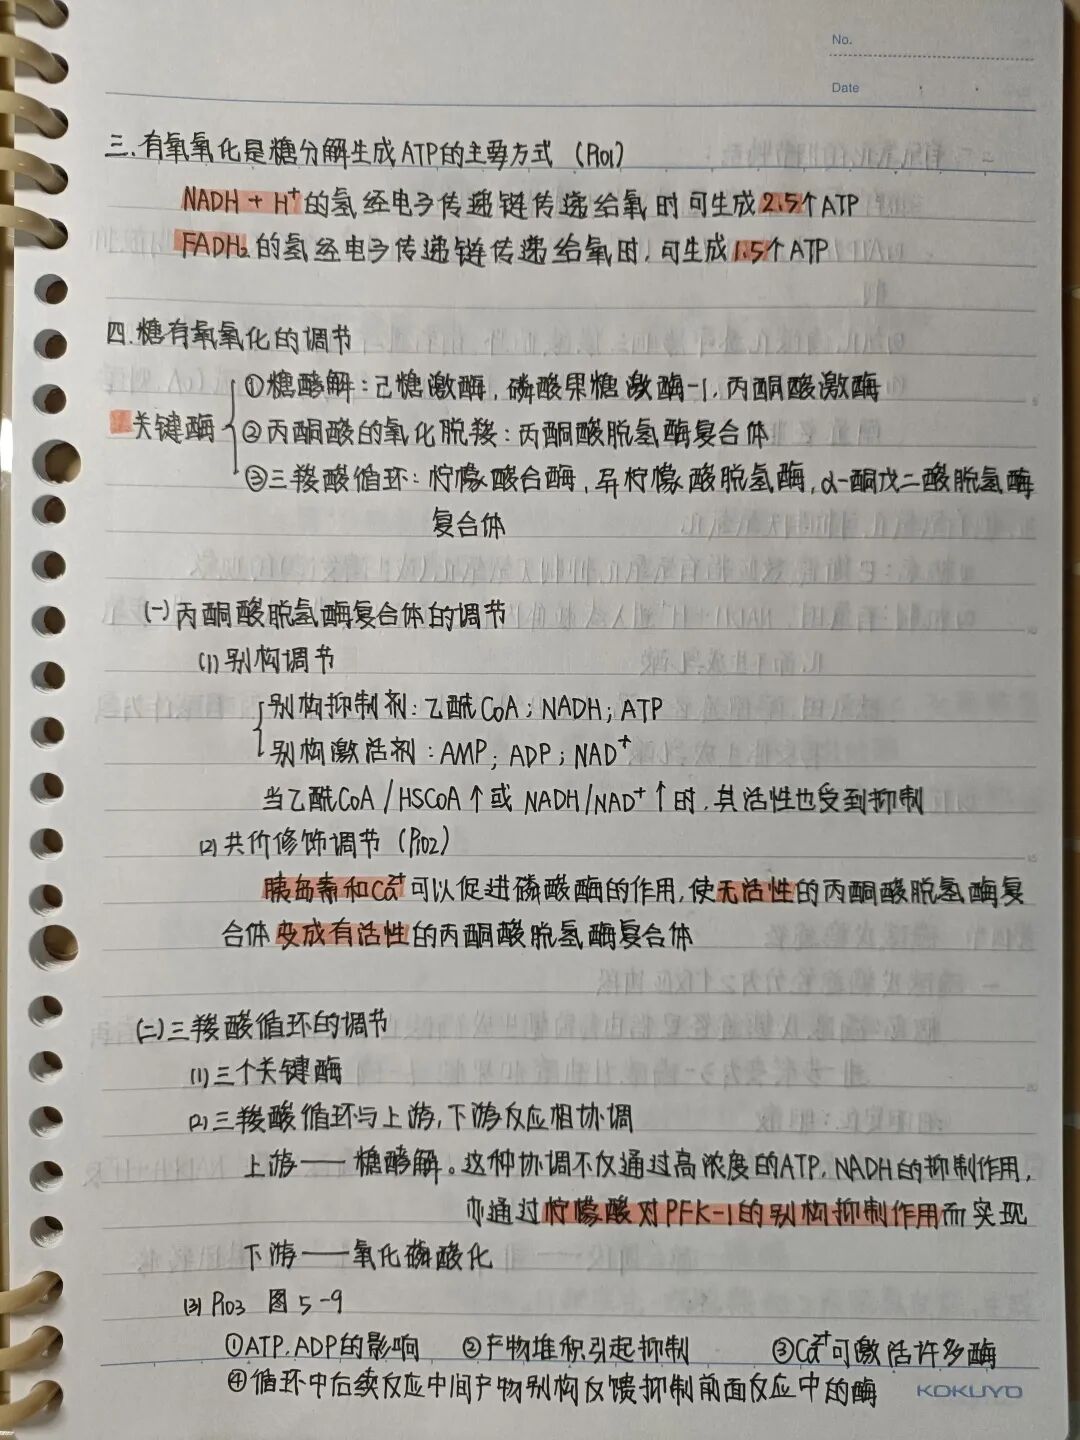 No.
Date
三.有氧氧化是糖分解生成ATP的主要方式 (P101)
NADH + H⁺的氢经电子传递链传递给氧时可生成2.5个ATP
FADH₂的氢经电子传递链传递给氧时,可生成1.5个ATP
四.糖有氧氧化的调节
关键酶
①糖酵解:己糖激酶,磷酸果糖激酶-1,丙酮酸激酶
②丙酮酸的氧化脱羧:丙酮酸脱氢酶复合体
③三羧酸循环:柠檬酸合酶,异柠檬酸脱氢酶,α-酮戊二酸脱氢酶
复合体
(一)丙酮酸脱氢酶复合体的调节
(1)别构调节
别构抑制剂:乙酰CoA;NADH;ATP
别构激活剂:AMP;ADP;NAD⁺
当乙酰CoA/HSCoA↑或NADH/NAD⁺↑时,其活性也受到抑制
(2)共价修饰调节(P102)
胰岛素和Ca²⁺可以促进磷酸酶的作用,使无活性的丙酮酸脱氢酶复
合体变成有活性的丙酮酸脱氢酶复合体
(二)三羧酸循环的调节
(1)三个关键酶
(2)三羧酸循环与上游,下游反应相协调
上游——糖酵解。这种协调不仅通过高浓度的ATP,NADH的抑制作用,
亦通过柠檬酸对PFK-1的别构抑制作用而实现
下游——氧化磷酸化
(3)P103 图5-9
①ATP.ADP的影响 ②产物堆积引起抑制 ③Ca²⁺可激活许多酶
④循环中后续反应中间产物别构反馈抑制前面反应中的酶
KOKUYO